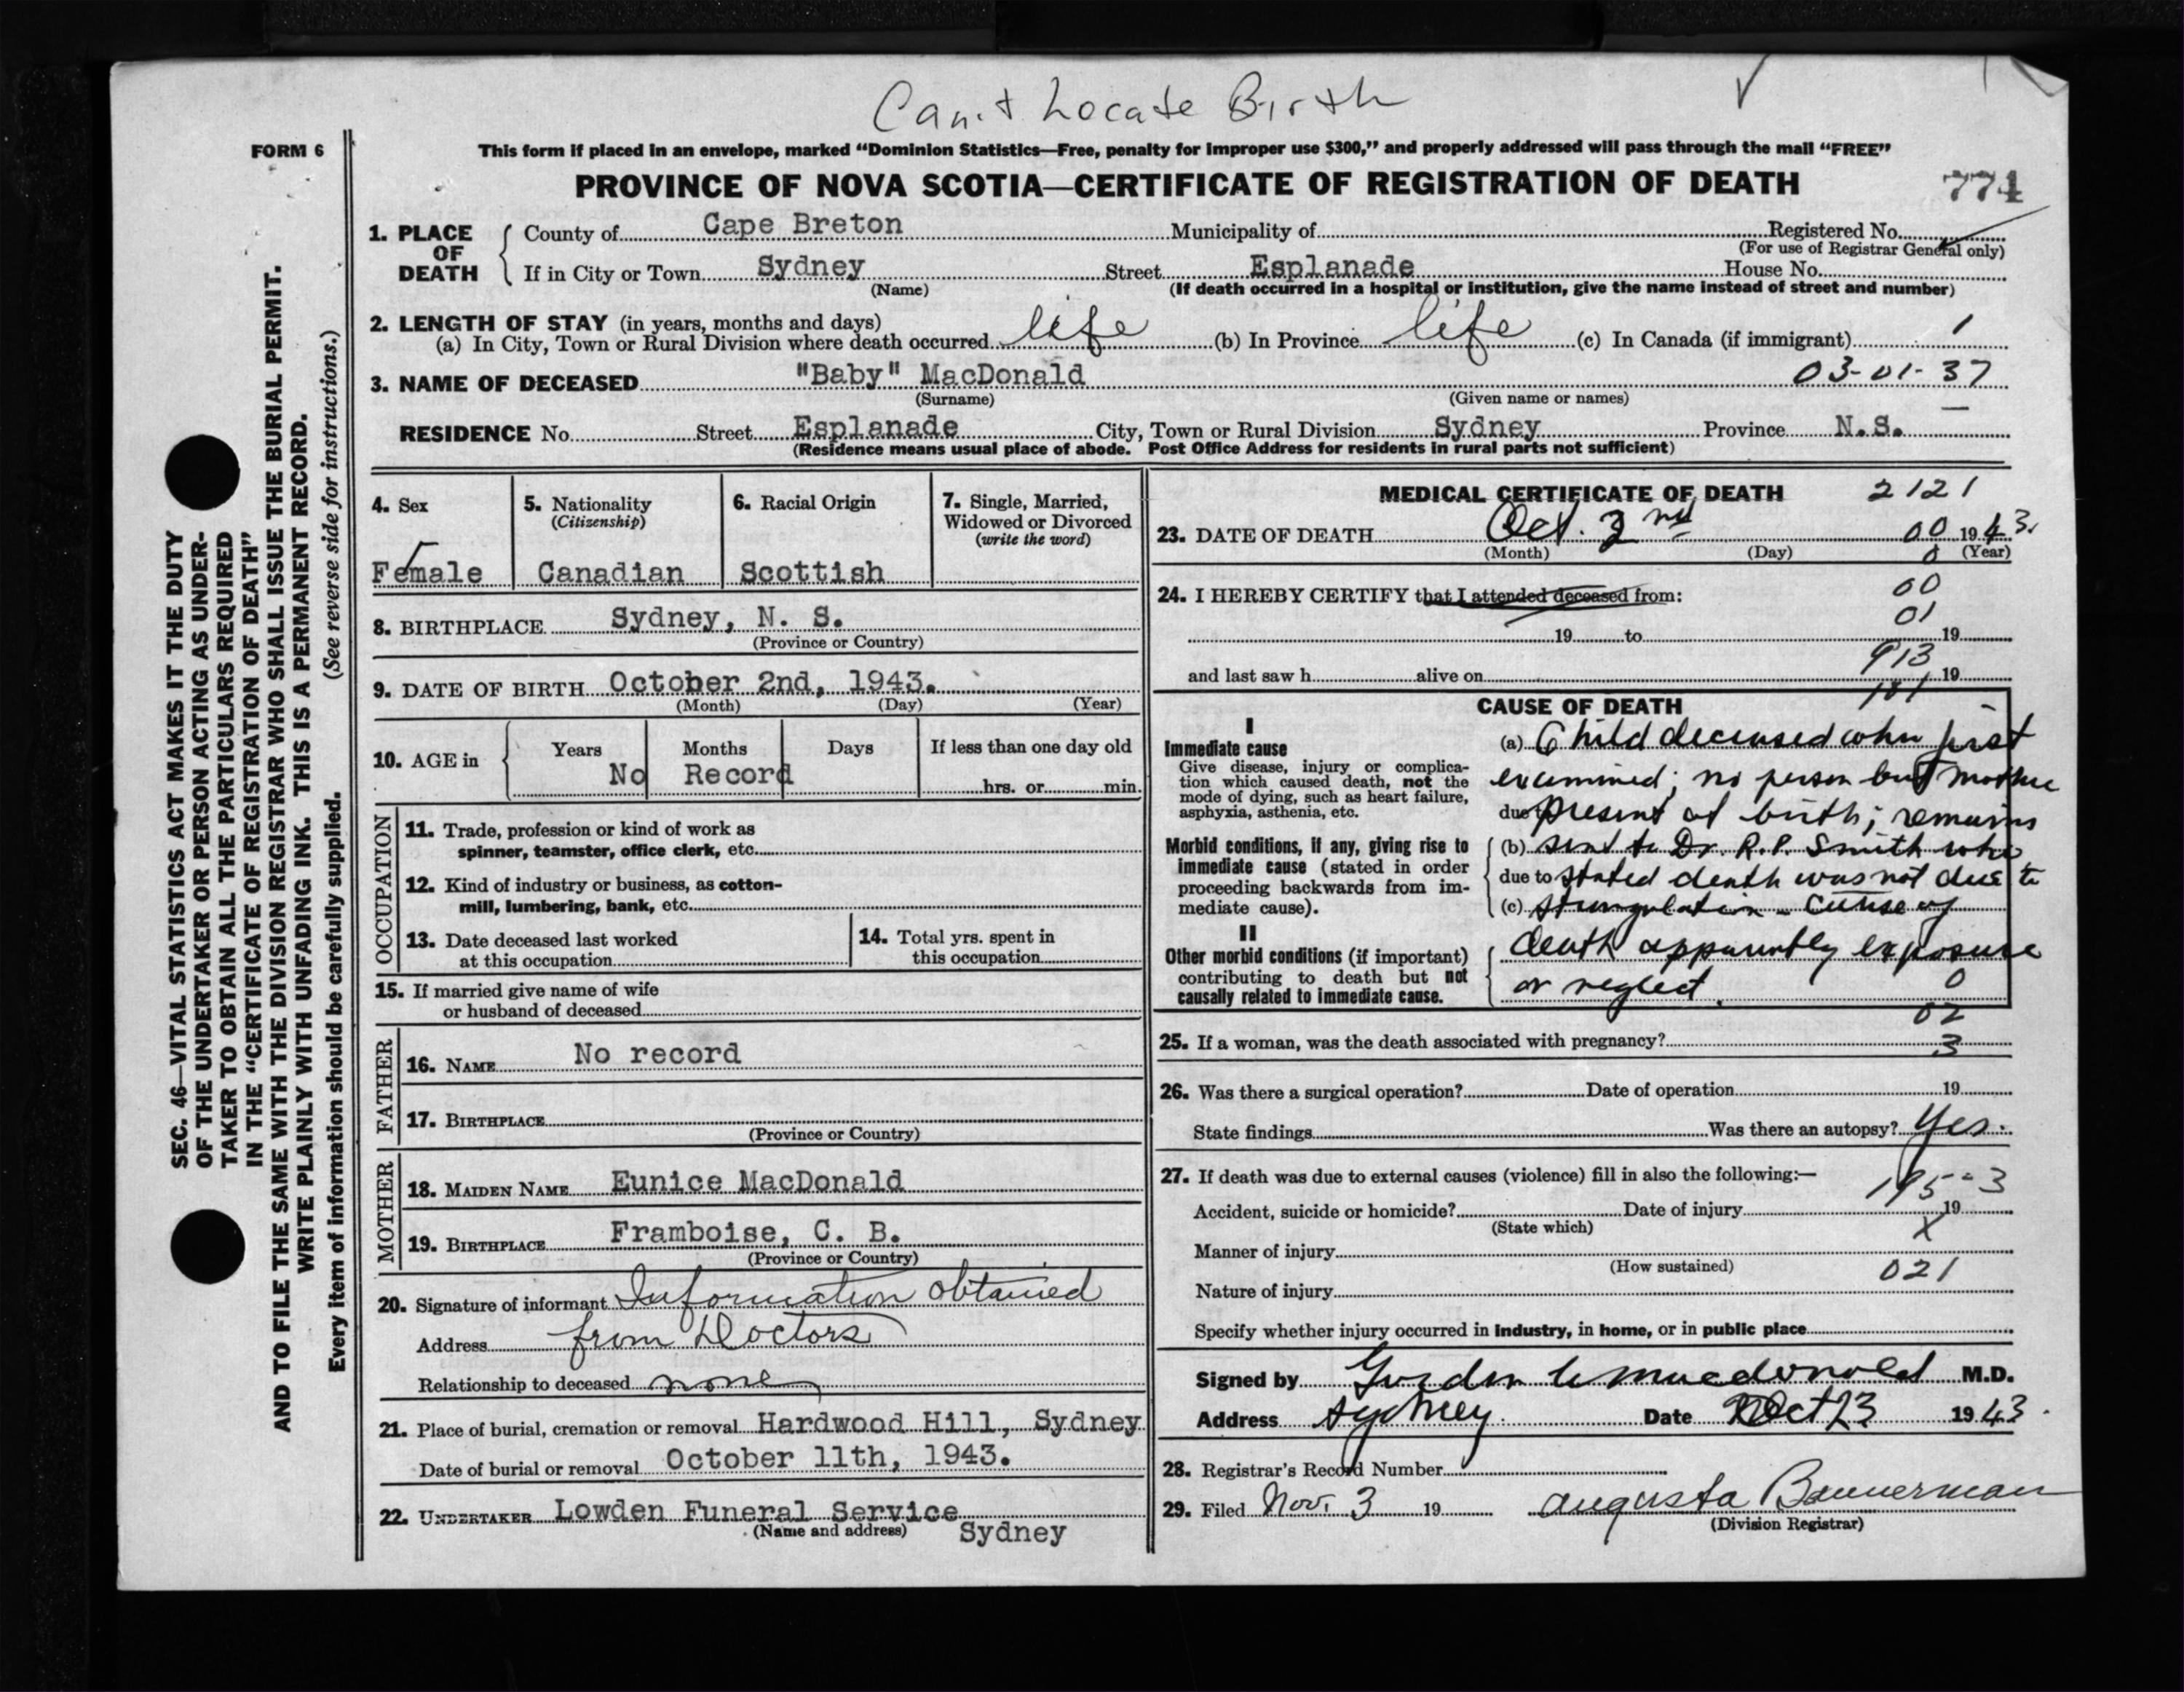 Can't Locate Birth
FORM 6
This form if placed in an envelope, marked “Dominion Statistics—Free, penalty for improper use $300,” and properly addressed will pass through the mail “FREE”
PROVINCE OF NOVA SCOTIA—CERTIFICATE OF REGISTRATION OF DEATH 774
1. PLACE OF DEATH
County of Cape Breton Municipality of Registered No.
(For use of Registrar General only)
If in City or Town Sydney Street Esplanade House No.
(Name) (If death occurred in a hospital or institution, give the name instead of street and number)
2. LENGTH OF STAY (in years, months and days)
(a) In City, Town or Rural Division where death occurred life (b) In Province life (c) In Canada (if immigrant) 1
3. NAME OF DECEASED "Baby" MacDonald 03-01-37
(Surname) (Given name or names)
RESIDENCE No. Street Esplanade City, Town or Rural Division Sydney Province N.S.
(Residence means usual place of abode. Post Office Address for residents in rural parts not sufficient)
4. Sex
Female
5. Nationality
(Citizenship)
Canadian
6. Racial Origin
Scottish
7. Single, Married,
Widowed or Divorced
(write the word)
8. BIRTHPLACE Sydney, N. S.
(Province or Country)
9. DATE OF BIRTH October 2nd, 1943.
(Month) (Day) (Year)
10. AGE in Years Months Days If less than one day old
No Record hrs. or min.
OCCUPATION
11. Trade, profession or kind of work as
spinner, teamster, office clerk, etc.
12. Kind of industry or business, as cotton-
mill, lumbering, bank, etc.
13. Date deceased last worked
at this occupation
14. Total yrs. spent in
this occupation
15. If married give name of wife
or husband of deceased
FATHER
16. NAME No record
17. BIRTHPLACE
(Province or Country)
MOTHER
18. MAIDEN NAME Eunice MacDonald
19. BIRTHPLACE Framboise, C. B.
(Province or Country)
20. Signature of informant Information obtained
Address from Doctors
Relationship to deceased none
21. Place of burial, cremation or removal Hardwood Hill, Sydney
Date of burial or removal October 11th, 1943.
22. UNDERTAKER Lowden Funeral Service
(Name and address) Sydney
MEDICAL CERTIFICATE OF DEATH 2121
23. DATE OF DEATH Oct. 2nd 00 1943.
(Month) (Day) (Year)
24. I HEREBY CERTIFY that I attended deceased from: 00
01
19 to 19
913
and last saw h alive on 19
CAUSE OF DEATH
I
Immediate cause
Give disease, injury or complica-
tion which caused death, not the
mode of dying, such as heart failure,
asphyxia, asthenia, etc.
Morbid conditions, if any, giving rise to
immediate cause (stated in order
proceeding backwards from im-
mediate cause).
II
Other morbid conditions (if important)
contributing to death but not
causally related to immediate cause.
(a) Child deceased when first
examined; no person but mother
due to present at birth; remains
(b) sent to Dr. R.P. Smith who
due to stated death was not due to
(c) strangulation - cause of
death apparently exposure
or neglect. 0
02
25. If a woman, was the death associated with pregnancy? 3
26. Was there a surgical operation? Date of operation 19
State findings Was there an autopsy? Yes.
27. If death was due to external causes (violence) fill in also the following:—
195-3
Accident, suicide or homicide? Date of injury 19
(State which) X
Manner of injury
(How sustained) 021
Nature of injury
Specify whether injury occurred in industry, in home, or in public place
Signed by Gordon Macdonald M.D.
Address Sydney Date Oct 23 1943.
28. Registrar's Record Number
29. Filed Nov. 3 19 Augusta Bannerman
(Division Registrar)
SEC. 46—VITAL STATISTICS ACT MAKES IT THE DUTY
OF THE UNDERTAKER OR PERSON ACTING AS UNDER-
TAKER TO OBTAIN ALL THE PARTICULARS REQUIRED
IN THE “CERTIFICATE OF REGISTRATION OF DEATH”
AND TO FILE THE SAME WITH THE DIVISION REGISTRAR WHO SHALL ISSUE THE BURIAL PERMIT.
WRITE PLAINLY WITH UNFADING INK. THIS IS A PERMANENT RECORD.
Every item of information should be carefully supplied. (See reverse side for instructions.)